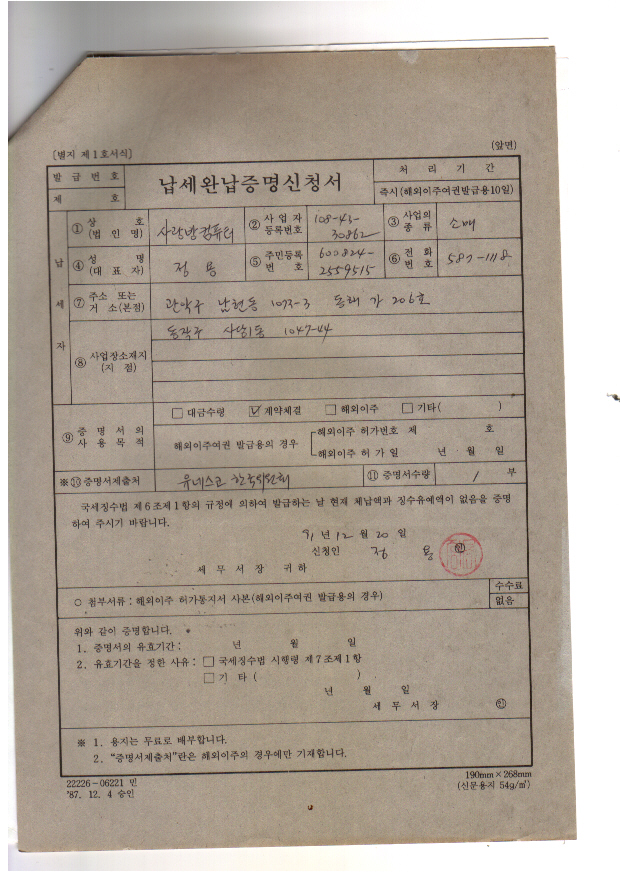 [별지 제1호서식]
(앞면)
발급번호
제 호
납세완납증명신청서
처리기간
즉시(해외이주여권발급용10일)
납세자
① 상호 (법인명)
사랑방컴퓨터
② 사업자등록번호
108-43-30862
③ 사업의종류
소매
④ 성명 (대표자)
정용
⑤ 주민등록번호
600824-2559515
⑥ 전화번호
587-1118
⑦ 주소 또는 거소(본점)
관악구 남현동 1073-3 가 206호
⑧ 사업장소재지 (지점)
동작구 사당1동 1047-44
⑨ 증명서의 사용목적
□ 대금수령 ☑ 계약체결 □ 해외이주 □ 기타( )
해외이주여권 발급용의 경우
해외이주 허가번호 제 호
해외이주 허가일 년 월 일
※⑩ 증명서제출처
유네스코 한국위원회
⑪ 증명서수량
1 부
국세징수법 제6조제1항의 규정에 의하여 발급하는 날 현재 체납액과 징수유예액이 없음을 증명
하여 주시기 바랍니다.
91년 12월 20일
신청인 정 용 ㊞
세무서장 귀하
○ 첨부서류 : 해외이주 허가통지서 사본(해외이주여권 발급용의 경우)
수수료
없음
위와 같이 증명합니다.
1. 증명서의 유효기간 : 년 월 일
2. 유효기간을 정한 사유 : □ 국세징수법 시행령 제7조제1항
□ 기타 ( )
년 월 일
세무서장 ㊞
※ 1. 용지는 무료로 배부합니다.
2. “증명서제출처”란은 해외이주의 경우에만 기재합니다.
22226-06221 민
'87. 12. 4 승인
190mm×268mm
(신문용지 54g/㎡)